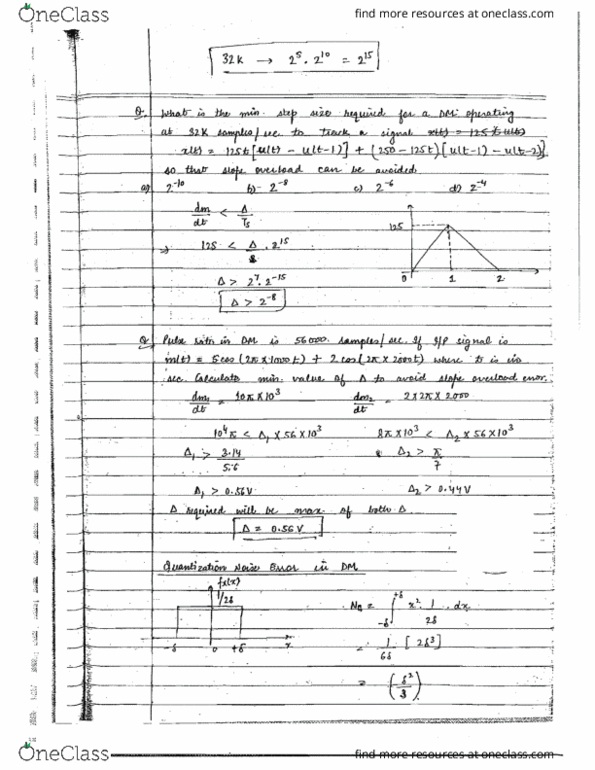 OneClass
find more resources at oneclass.com
32K → 2⁵ · 2¹⁰ = 2¹⁵
Q. What is the min. step size required for a DM operating
at 32K samples/sec to track a signal x(t) = 125 t u(t)
x(t) = 125t[u(t) - u(t-1)] + (250 - 125t)[u(t-1) - u(t-2)]
so that slope overload can be avoided.
a) 2⁻¹⁰ b) 2⁻⁸ c) 2⁻⁶ d) 2⁻⁴
dm/dt < Δ/Ts
125 < Δ · 2¹⁵
Δ > 2⁷ · 2⁻¹⁵
Δ > 2⁻⁸
125
0 1 2
Q Pulse rate in DM is 56000 samples/sec. If I/P signal is
m(t) = 5cos(2π×1000t) + 2cos(2π×2000t) where t is in
sec. Calculate min. value of Δ to avoid slope overload error.
dm₁/dt = 10π×10³ dm₂/dt = 2×2π×2000
10⁴π < Δ₁ × 56×10³ 8π×10³ < Δ₂ × 56×10³
Δ₁ > 3.14/5.6 Δ₂ > π/7
Δ₁ > 0.56V Δ₂ > 0.44V
Δ required will be max. of both Δ.
Δ = 0.56V
Quantization Noise Error in DM
fx(x)
1/2δ
-δ 0 +δ x
NQ = ∫₋δ⁺δ x² · 1/2δ · dx
= 1/6δ [2δ³]
= (δ²/3)
OneClass
find more resources at oneclass.com